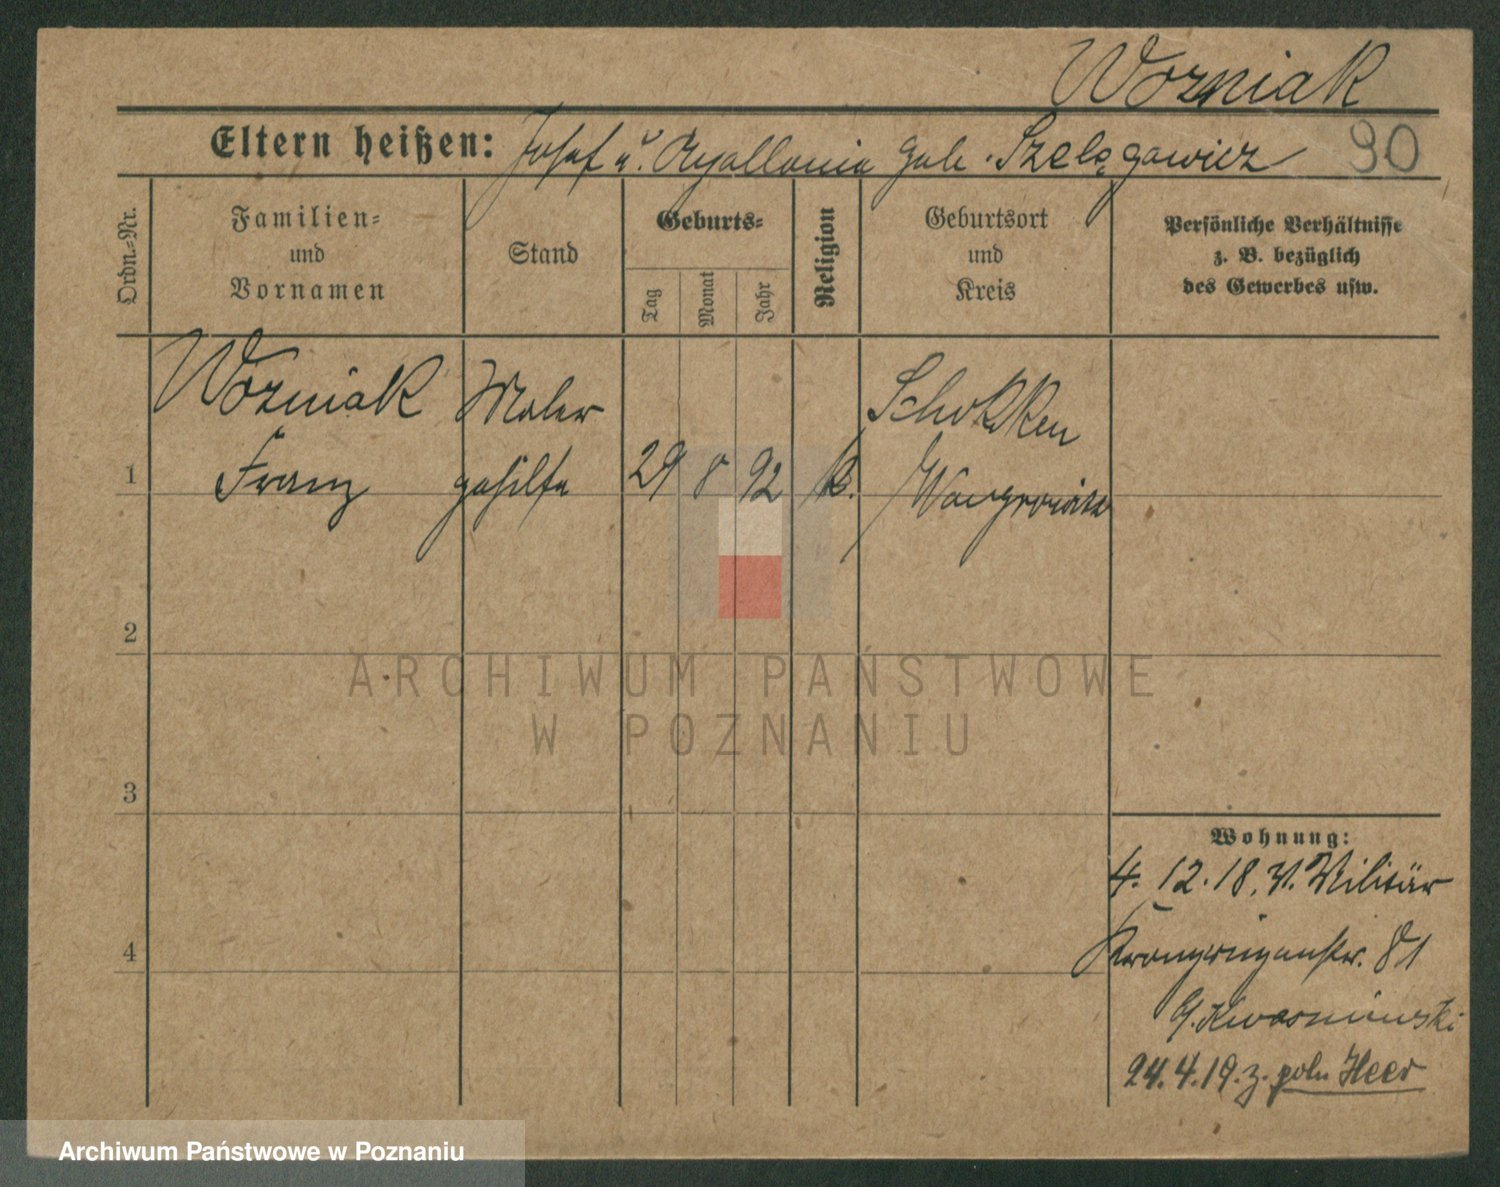 Wozniak
Eltern heißen: Josef u. Apollonia geb. Szelęgowicz 90
Ordn.=Nr.
Familien=
und
Vornamen
Stand
Geburts=
Tag
Monat
Jahr
Religion
Geburtsort
und
Kreis
Persönliche Verhältnisse
z. B. bezüglich
des Gewerbes usw.
Wozniak Maler Schokken
1 Franz gehilfe 29 8 92 k. Wongrowitz
2
3
4
Wohnung:
4. 12. 18. v. Militär
Kronprinzenstr. 81
24. 4. 19. z. poln Heer
ARCHIWUM PAŃSTWOWE
W POZNANIU
Archiwum Państwowe w Poznaniu